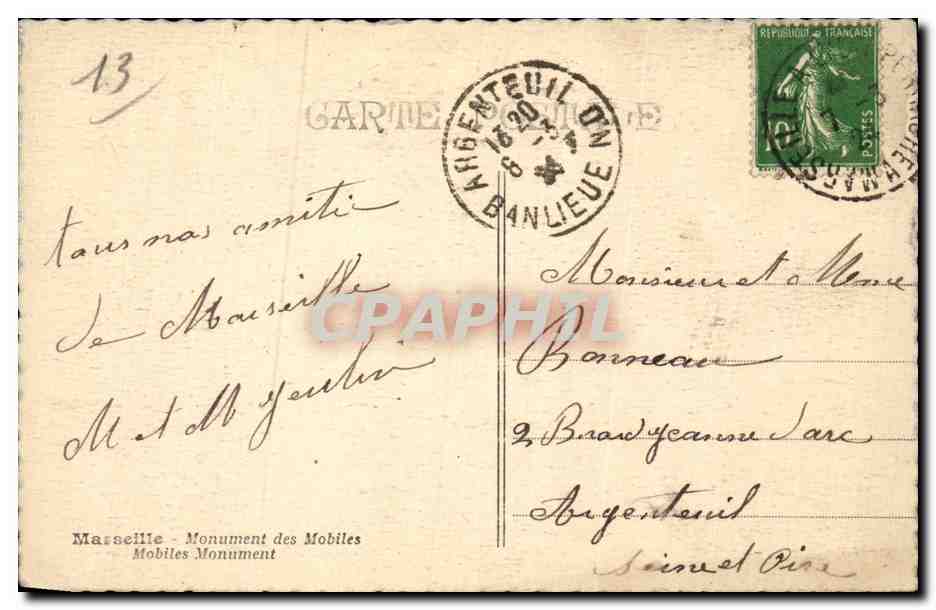 13
CARTE POSTALE
ARGENTEUIL DN
1320
BANLIEUE
REPUBLIQUE FRANÇAISE
POSTES
MARSEILLE
tous nos amitié
de Marseille
M et M
CPAPHIL
Monsieur et Mme
Bonneau
2 B Jeanne Darc
Argenteuil
Seine et Oise
Marseille - Monument des Mobiles
Mobiles Monument